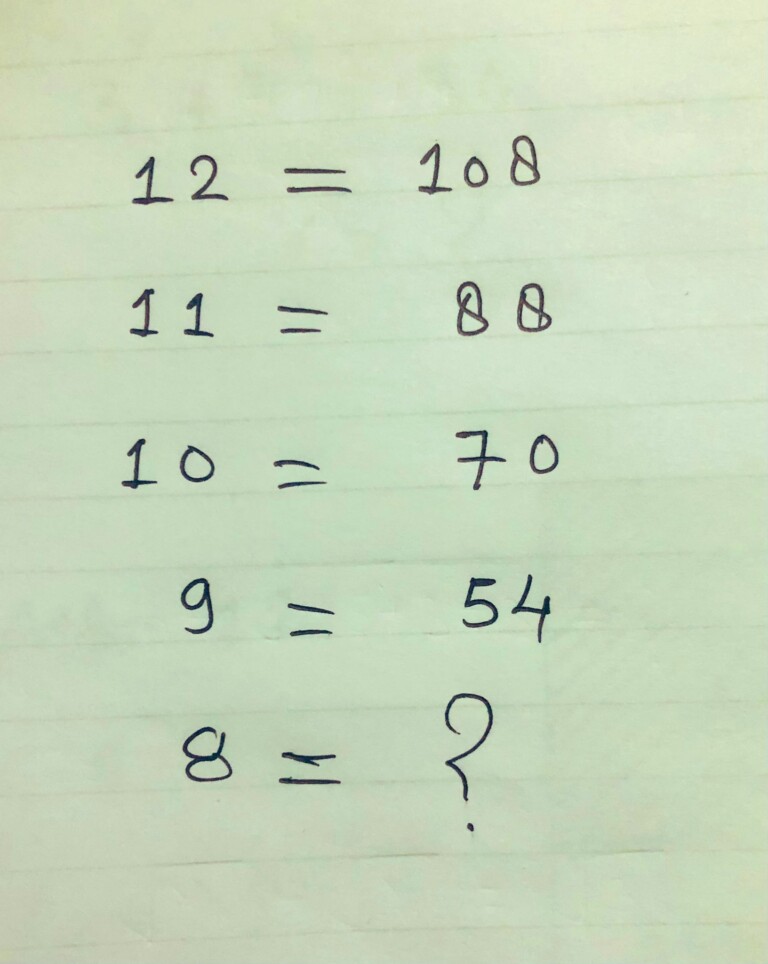 12 = 108
11 = 88
10 = 70
9 = 54
8 = ?